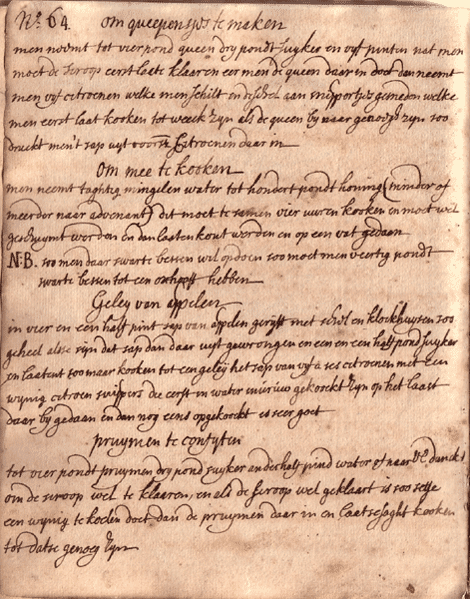 No. 64. om queepensijs te maken
men noemt tot vier pond queen dry pondt suyker en vyf pinten nat men
moet de seroop eerst laete klaaren eer men de queen daar in doet dan neemt
men vyf citroenen welke men schilt en de schel aan snippertjes gesneden welke
men eerst laat kooken tot weeck zyn als de queen by naer genoegh zyn soo
druckt men't sap uyt voorsz: citroenen daar in
Om mee te kooken
men neemt taghtig mingelen water tot hondert pondt honing (minder of
meerder naer advenant) dit moet te samen vier uuren kooken en moet wel
geschuymt worden en dan laaten kout werden en op een vat gedaan
N:B. soo men daar swarte bessen wil opdoen soo moet men veertig pondt
swarte bessen tot een oxhooft hebben
Geley van appelen
in vier en een half pint sap van appelen gerijft met schel en klockhuysen soo
geheel alsse zijn dat sap dan daar uyt gewrongen en een en een half pond suyker
en laatent soo maer kooken tot een geley het sap van vyf à ses citroenen met een
wynig citroen snipers die eerst in water murruw gekoockt zyn op het laast
daar by gedaan en dan nog eens opgekoockt is seer goet
pruymen te confyten
tot vier pondt pruymen dry pond suyker anderhalf pind water of naer UE danckt
om de seroop wel te klaaren, en als de seroop wel geklaart is soo sette
een wynig te koelen doet dan de pruymen daar in en laatse saght kooken
tot datse genoeg zyn